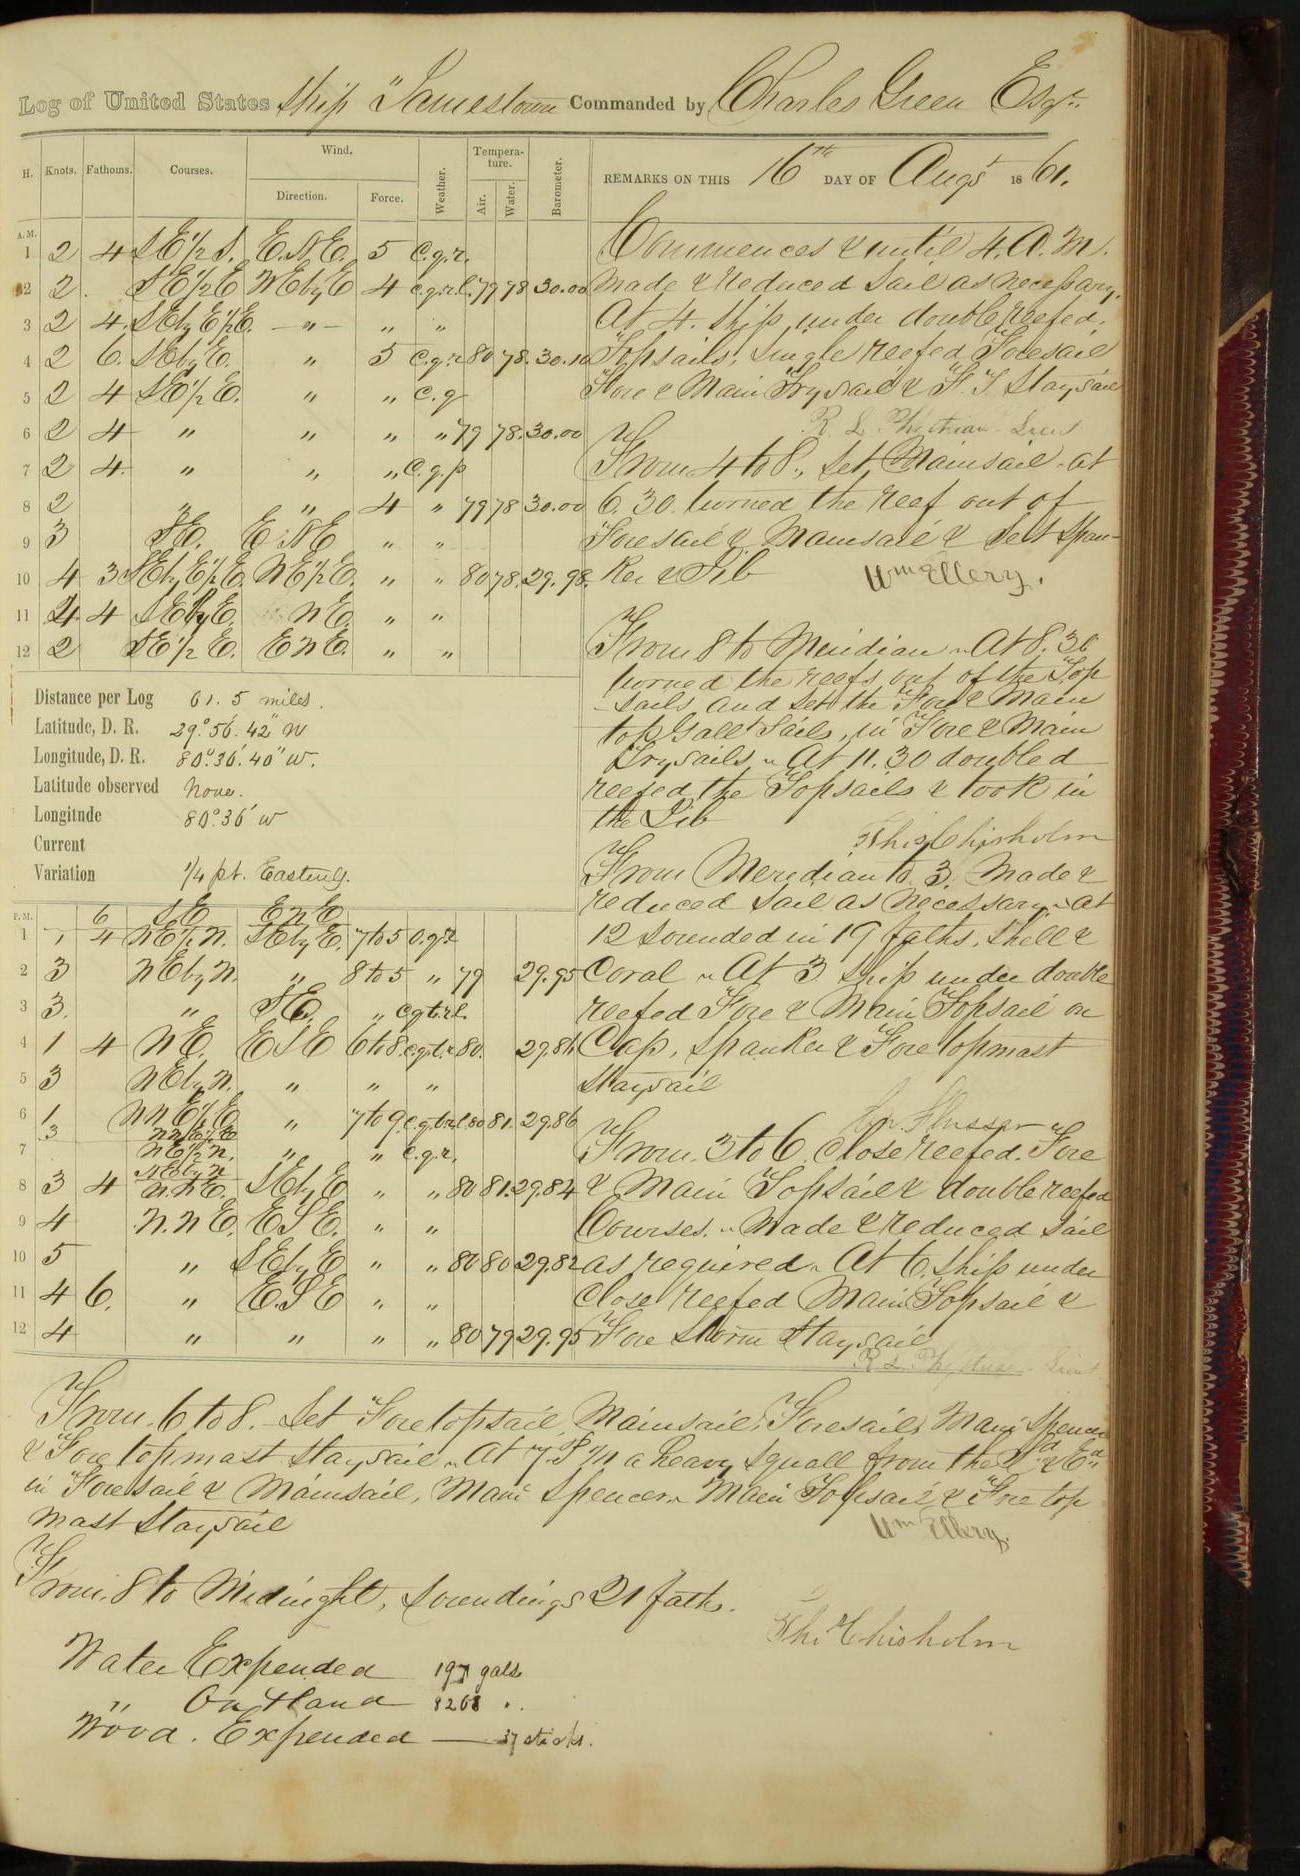 Log of United States Ship "Jamestown Commanded by Charles Green Esqr.
H. Knots. Fathoms. Courses. Wind. Direction. Force. Weather. Tempera-ture. Air. Water. Barometer.
REMARKS ON THIS 16th DAY OF Augst 1861.
A.M.
1 2 4 SE 1/2 S. E.N.E. 5 c.g.r.
2 2 SE 1/2 E NEbyE 4 c.g.r.l. 79 78 30.00
3 2 4. SEby E 1/2 E. — " — " "
4 2 6. SEbyE. " 5 c.g.r 80 78. 30.10
5 2 4 SE 1/2 E. " " c.g
6 2 4 " " " " 79 78. 30.00
7 2 4. " " " c.g.p
8 2 " " 4 " 79 78 30.00
9 3 SE. E.N.E " "
10 4 3 SEby E 1/2 E. NE 1/2 E. " " 80 78. 29.98.
11 4 4 SEbyE. NE. " "
12 2 SE 1/2 E. ENE. " "
Commences & until 4. A.M.
made & reduced sail as necessary.
At 4. ship under double reefed
Topsails, single reefed Foresail
Fore & Main Trysail & F.T. Staysail
R. L. Phythian Lieut
From 4 to 8., set Mainsail at
6.30. turned the reef out of
Foresail & Mainsail & set Span-
ker & Jib
Wm Ellery.
From 8 to Meridian " At 8.30
turned the reefs out of the Top
sails, and set the Fore & Main
top Gall't sails, in Fore & Main
Trysails " At 11.30 doubled
reefed the Topsails & took in
the Jib
Thos Chisholm
Distance per Log 61.5 miles.
Latitude, D. R. 29° 56' 42" N
Longitude, D. R. 80° 36' 40" W.
Latitude observed None.
Longitude 80° 36' W
Current
Variation 1/4 pt. Easterly.
P.M. 6 SE ENE
1 1 4 NE 1/2 N. SEbyE. 7 to 5 o.g.r
2 3 NEbyN. " 8 to 5 " 79 29.95
3 3. " SE. " c.g.t.r.l.
4 1 4 NE. ESE 6 to 8. c.g.t.r. 80. 29.84
5 3 NEbyN. " " "
6 1 NNE 1/2 E " 7 to 9. c.g.t.r.l. 80 81. 29.86
3 NNE 1/2 E
7 NE 1/2 N. " " c.g.r.
NEbyN
8 3 4 N.N.E. SEbyE " " 80 81. 29.84
9 4 N.N.E. ESE. " "
10 5 " SEbyE " " 80 80 29.82
11 4 6. " E.S.E " "
12 4 " " " " 80 79 29.95
From Meridian to 3. Made &
reduced sail as necessary " At
12 sounded in 19 faths. shell &
Coral " At 3 ship under double
reefed Fore & Main Topsail on
Cap, Spanker & Fore topmast
Staysail
From 3 to 6. close reefed Fore
& Main Topsail & double reefed
Courses. " Made & reduced sail
as required " At 6. ship under
close reefed Main Topsail &
Fore storm Staysail
R. L. Phythian Lieut
From 6 to 8. Set Foretopsail, Mainsail, Foresail, Main Spencer
& Fore topmast Staysail " At 7. P.M a heavy squall from the Sd & Ed "
in Foresail & Mainsail, Main Spencer " Main Topsail & Fore top
mast Staysail
Wm Ellery.
From 8 to Midnight, Soundings 21 faths.
Thos Chisholm
Water Expended 197 gals
" On Hand 8268 "
Wood. Expended — 37 sticks.